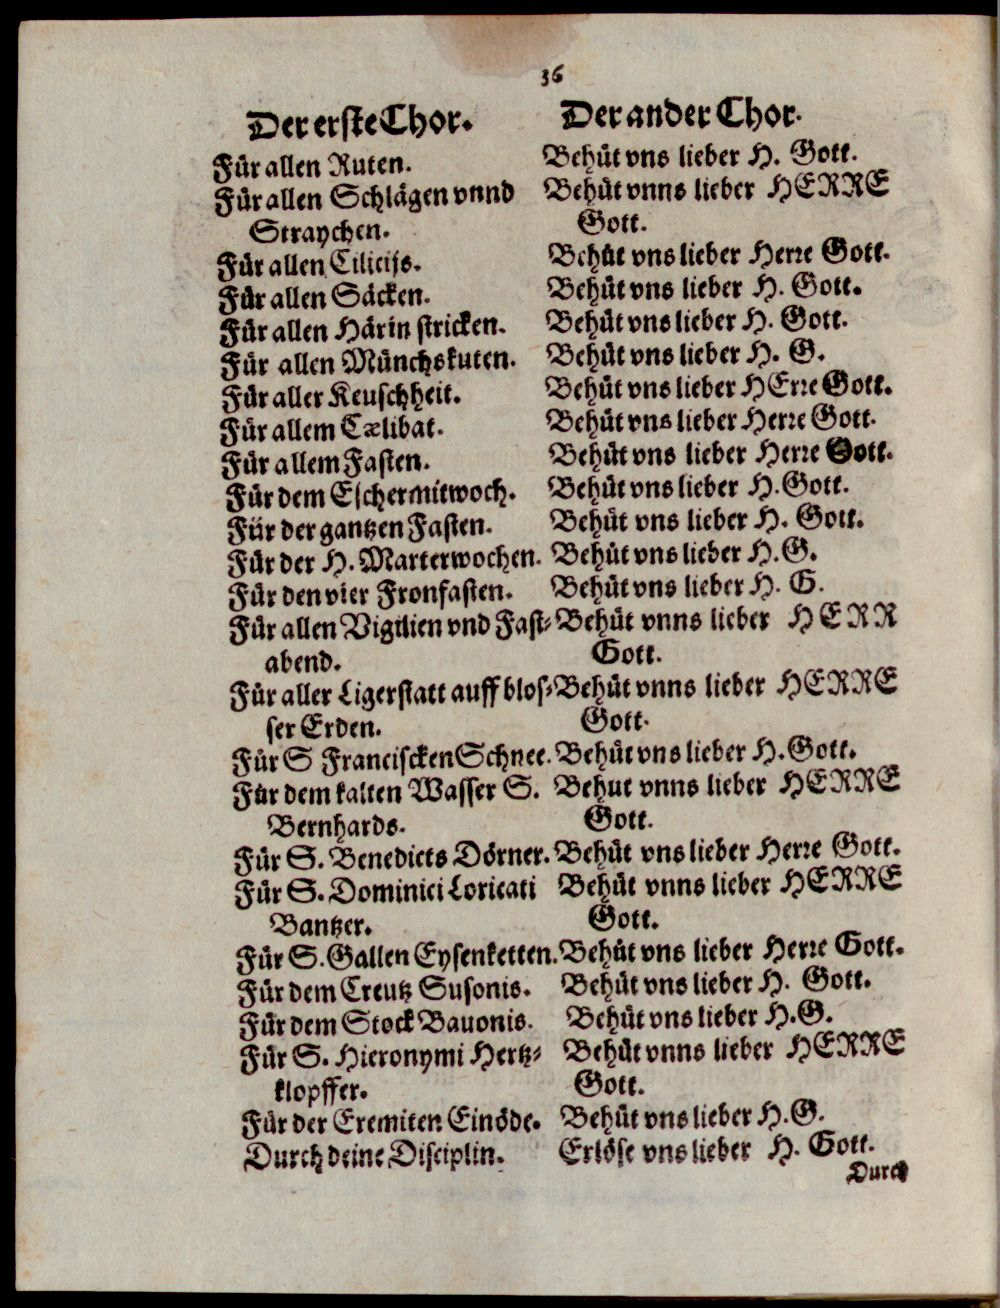 36
Der erste Chor. Der ander Chor.
Für allen Ruten. Behüt vns lieber H. Gott.
Für allen Schlägen vnnd Behüt vnns lieber HERRE
Straychen. Gott.
Für allen Cilicijs. Behüt vns lieber Herre Gott.
Für allen Säcken. Behüt vns lieber H. Gott.
Für allen Härin stricken. Behüt vns lieber H. Gott.
Für allen Münchskuten. Behüt vns lieber H. G.
Für aller Keuschheit. Behüt vns lieber HErre Gott.
Für allem Cælibat. Behüt vns lieber Herre Gott.
Für allem Fasten. Behüt vns lieber Herre Gott.
Für dem Eschermitwoch. Behüt vns lieber H. Gott.
Für der gantzen Fasten. Behüt vns lieber H. Gott.
Für der H. Marterwochen. Behüt vns lieber H. G.
Für den vier Fronfasten. Behüt vns lieber H. G.
Für allen Vigilien vnd Fast⸗ Behüt vnns lieber HERR
abend. Gott.
Für aller Ligerstatt auff blos⸗ Behüt vnns lieber HERRE
ser Erden. Gott.
Für S Franciscken Schnee. Behüt vns lieber H. Gott.
Für dem kalten Wasser S. Behut vnns lieber HERRE
Bernhards. Gott.
Für S. Benedicts Dörner. Behüt vns lieber Herre Gott.
Für S. Dominici Loricati Behüt vnns lieber HERRE
Bantzer. Gott.
Für S. Gallen Eysenketten. Behüt vns lieber Herre Gott.
Für dem Creutz Susonis. Behüt vns lieber H. Gott.
Für dem Stock Bauonis. Behüt vns lieber H. G.
Für S. Hieronymi Hertz⸗ Behüt vnns lieber HERRE
klopffer. Gott.
Für der Eremiten Einöde. Behüt vns lieber H. G.
Durch deine Disciplin. Erlöse vns lieber H. Gott.
Durch